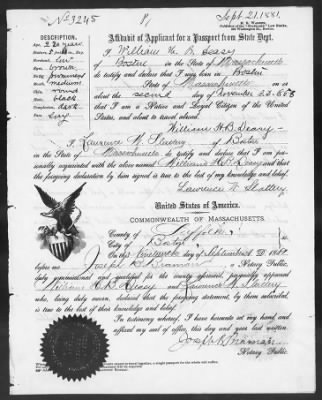 No 3245
Sept. 21, 1881.
Affidavit of Applicant for a Passport from State Dept.
DESCRIPTION.
I William H. B. Deasy
of Boston in the State of Massachusetts
to testify and declare that I was born in Boston
State of Massachusetts on or
about the second day of November
that I am a Native and Loyal Citizen of the United
States, and about to travel abroad.
medium
round
black
dark
William H B Deasy
I Lawrence W. Slattery of Boston
in the State of Massachusetts to testify and declare that I am per-
sonally acquainted with the above named William H B Deasy and that
the foregoing declaration by him signed is true to the best of my knowledge and belief.
Lawrence W. Slattery
United States of America.
COMMONWEALTH OF MASSACHUSETTS.
County of Suffolk
City of Boston
On this day of September A.D. 1881
before me Joseph B. Notary Public,
duly commissioned and qualified for the county aforesaid, personally appeared
William H. B. Deasy and Lawrence W. Slattery
who, being duly sworn, declared that the foregoing statement, by them subscribed,
is true to the best of their knowledge and belief.
In testimony whereof, I have hereunto set my hand and
affixed my seal of office, this day and year last written.
Joseph B.
Notary Public.